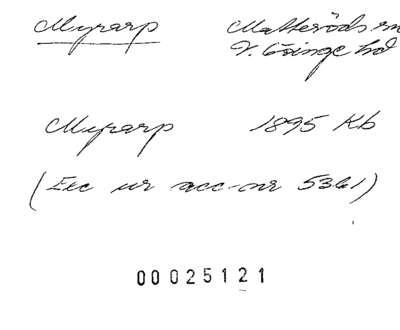 Myrarp Matteröds sn
V. Göinge hd
Myrarp 1895 Kb
(Exc ur acc-nr 5361)
00025121